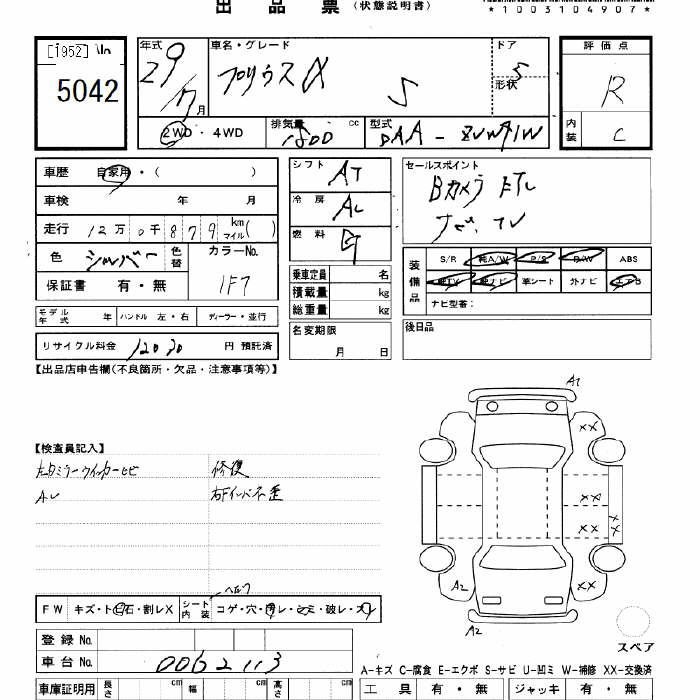 出品票（状態説明書）
*1003104907*
[1952]
5042
年式 29
7月
車名・グレード
プリウスα S
ドア 5
形状
評価点
R
2WD・4WD
排気量 cc 1800
型式 DAA-ZVW41W
内装 C
車歴 自家用・（ ）
シフト AT
セールスポイント
車検 年 月
冷房 AC
Bカメラ ETC
走行 12万0千879 km マイル（ ）
ナビ、TV
燃料
色 シルバー 色替 カラーNo.
1F7
装備品 S/R 純A/W P/S P/W ABS
純TV 純ナビ 革シート 外ナビ エアB
保証書 有・無
乗車定員 名
積載量 kg
総重量 kg
ナビ型番：
モデル年式 年 ハンドル 左・右 ディーラー・並行
名変期限
月 日
後日品
リサイクル料金 12030 円 預託済
【出品店申告欄(不良箇所・欠品・注意事項等)】
A1
XX
【検査員記入】
左ドミラーウィンカーヒビ 修復
右Fインパネ歪
XX
XX
A2 XX
A2
FW キズ・ト石・割レX シート内装 コゲ・穴・レ・ミ・破レ・
登録No.
スペア
車台No. 0062113
A－キズ C－腐食 E－エクボ S－サビ U－凹ミ W－補修 XX－交換済
車庫証明用 長さ cm 幅 cm 高さ cm
工具 有・無 ジャッキ 有・無